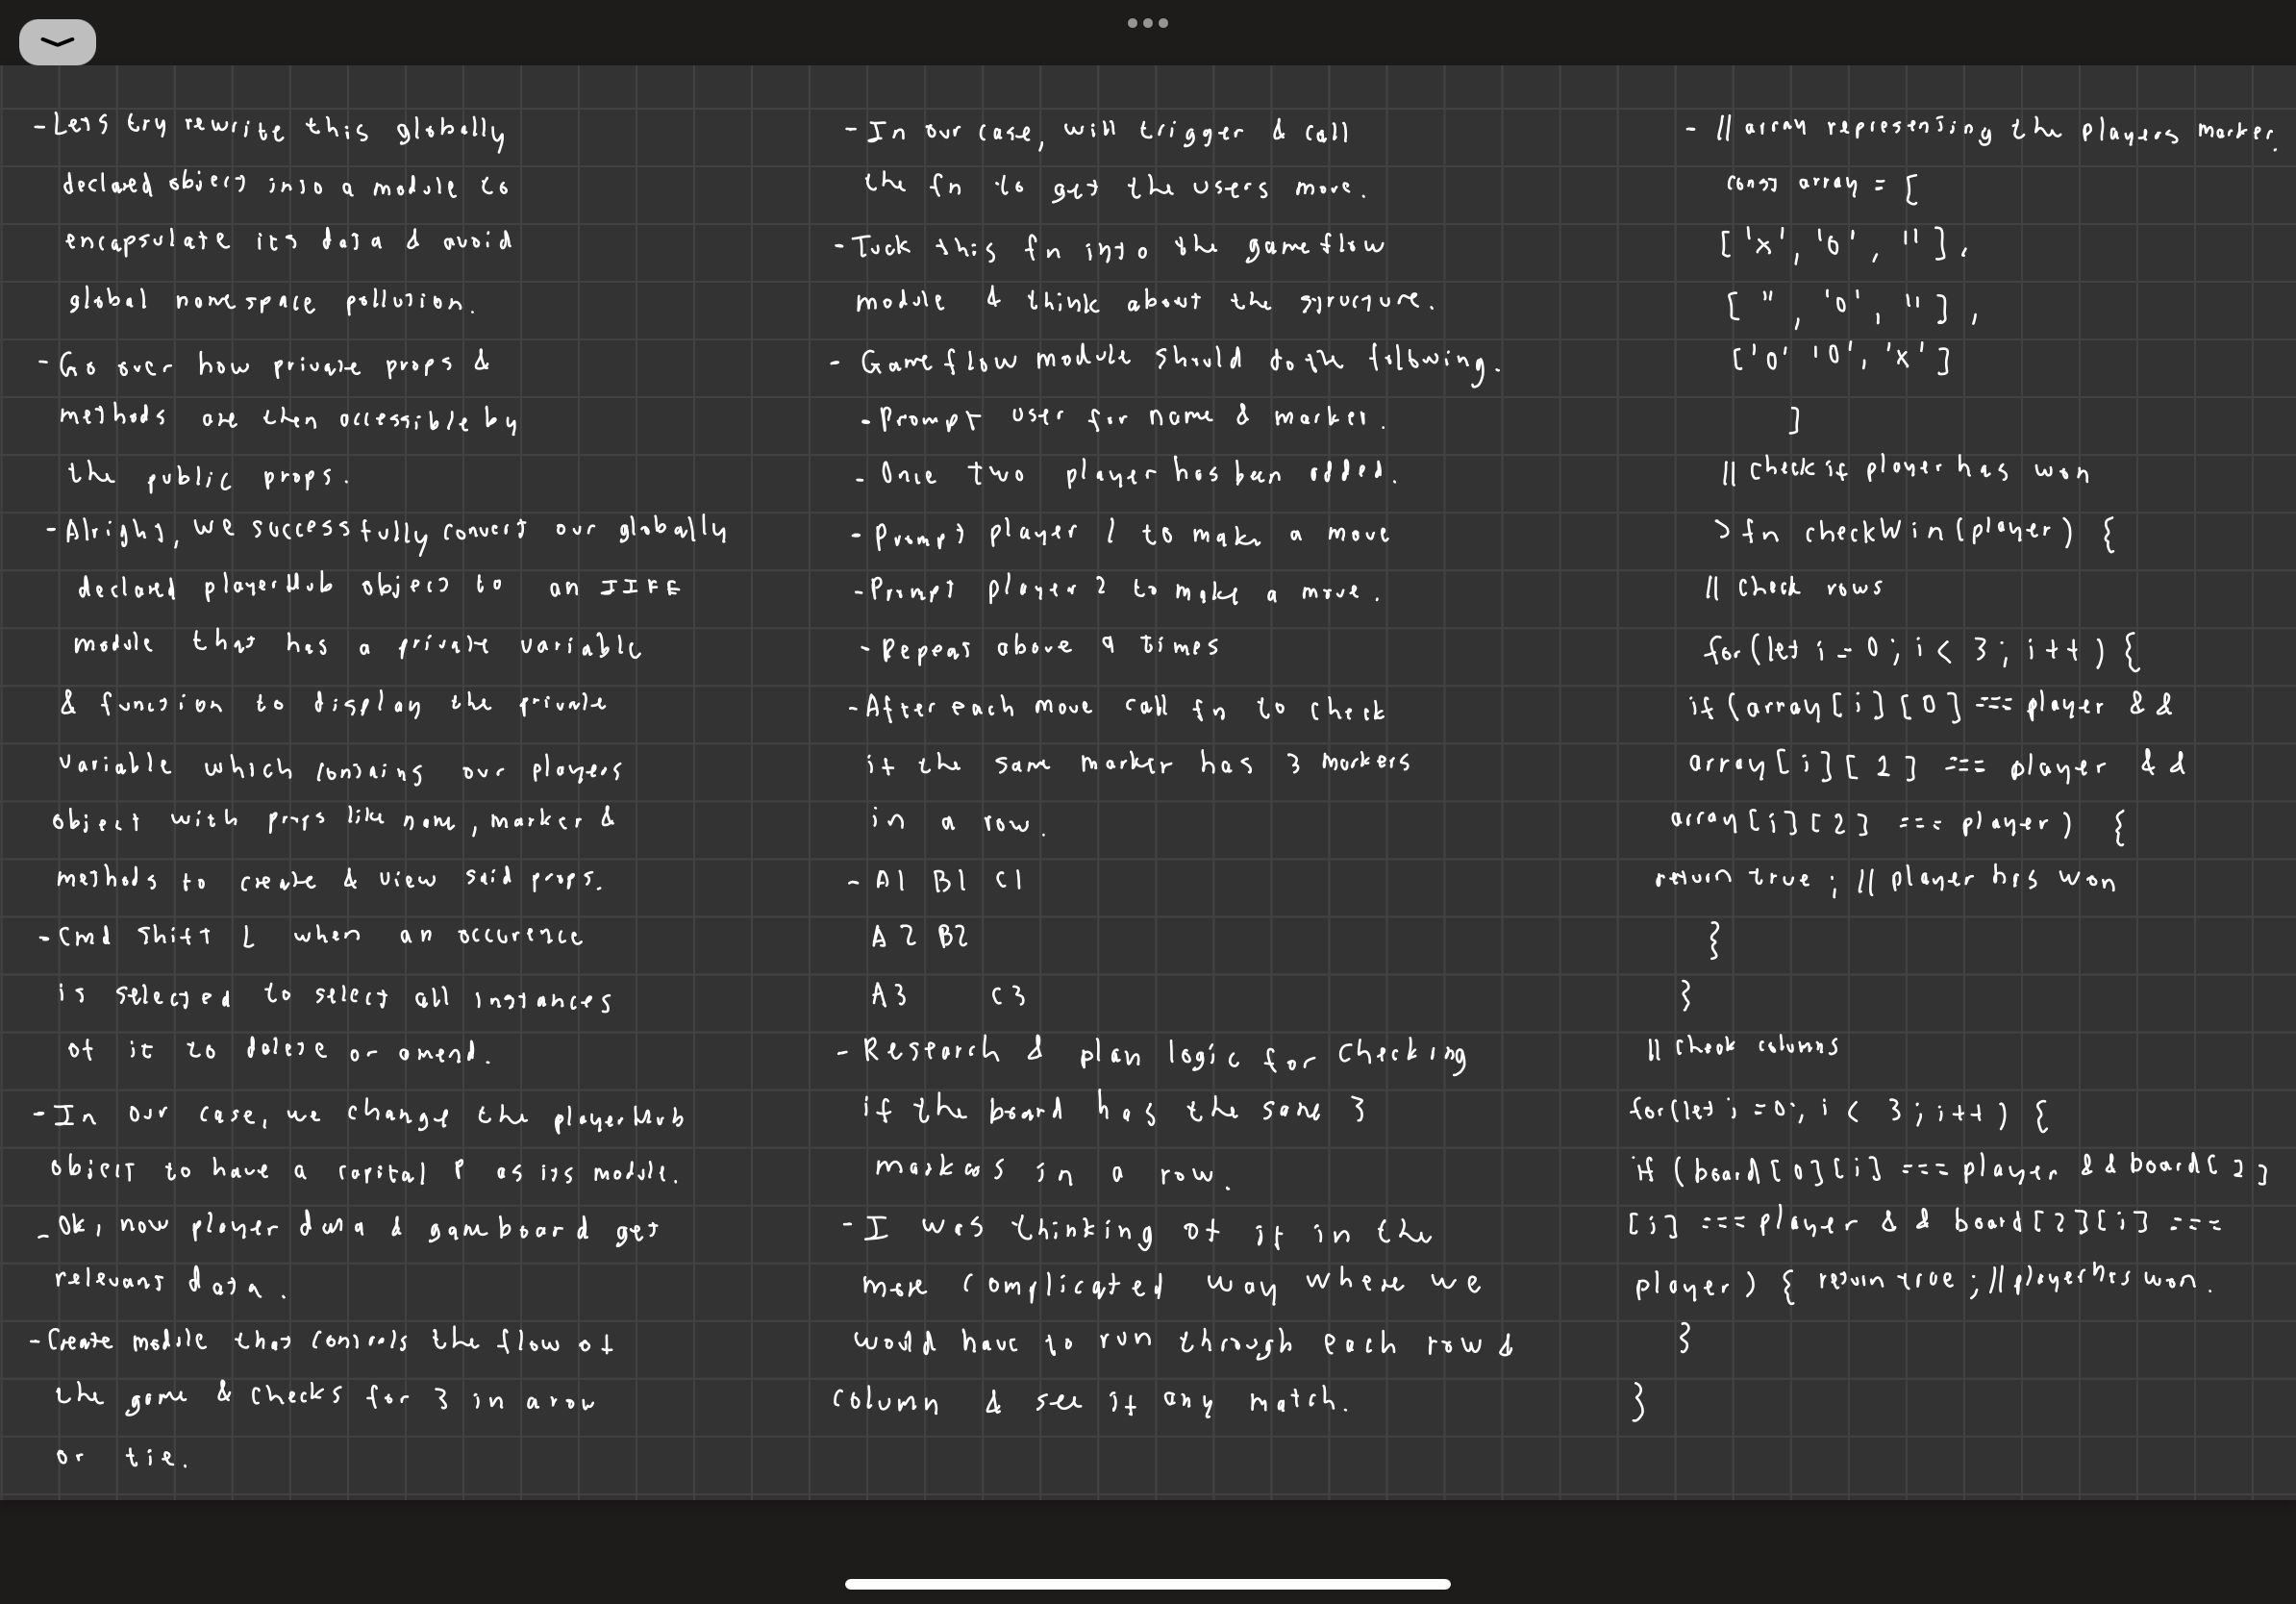 - Lets try rewrite this globally
declared object into a module to
encapsulate its data & avoid
global namespace pollution.
- Go over how private props &
methods are then accessible by
the public props.
- Alright, we successfully convert our globally
declared playerHub object to an IIFE
module that has a private variable
& function to display the private
variable which contains our players
object with props like name, marker &
methods to create & view said props.
- Cmd Shift L when an occurence
is selected to select all instances
of it to delete or amend.
- In our case, we change the playerHub
object to have a capital P as its module.
- Ok, now player data & gameboard get
relevant data.
- Create module that controls the flow of
the game & checks for 3 in a row
or tie.
- In our case, will trigger & call
the fn to get the users move.
- Tuck this fn into the gameflow
module & think about the structure.
- Gameflow module should do the following.
- Prompt user for name & marker.
- Once two player has been added.
- Prompt player 1 to make a move
- Prompt player 2 to make a move.
- Repeat above 9 times
- After each move call fn to check
if the same marker has 3 markers
in a row.
- A1 B1 C1
A2 B2
A3 C3
- Research & plan logic for checking
if the board has the same 3
markers in a row.
- I was thinking of it in the
more complicated way where we
would have to run through each row &
column & see if any match.
- // array representing the players marker.
const array = [
['x', '0', ''],
['', '0', ''],
['0' '0', 'x']
]
// check if player has won
> fn checkWin(player) {
// check rows
for(let i = 0; i < 3; i++) {
if (array[i][0] === player &&
array[i][1] === player &&
array[i][2] === player) {
return true; // player has won
}
}
// check columns
for(let i = 0; i < 3; i++) {
if (board[0][i] === player && board[1]
[i] === player && board[2][i] ===
player) { return true; // player has won.
}
}